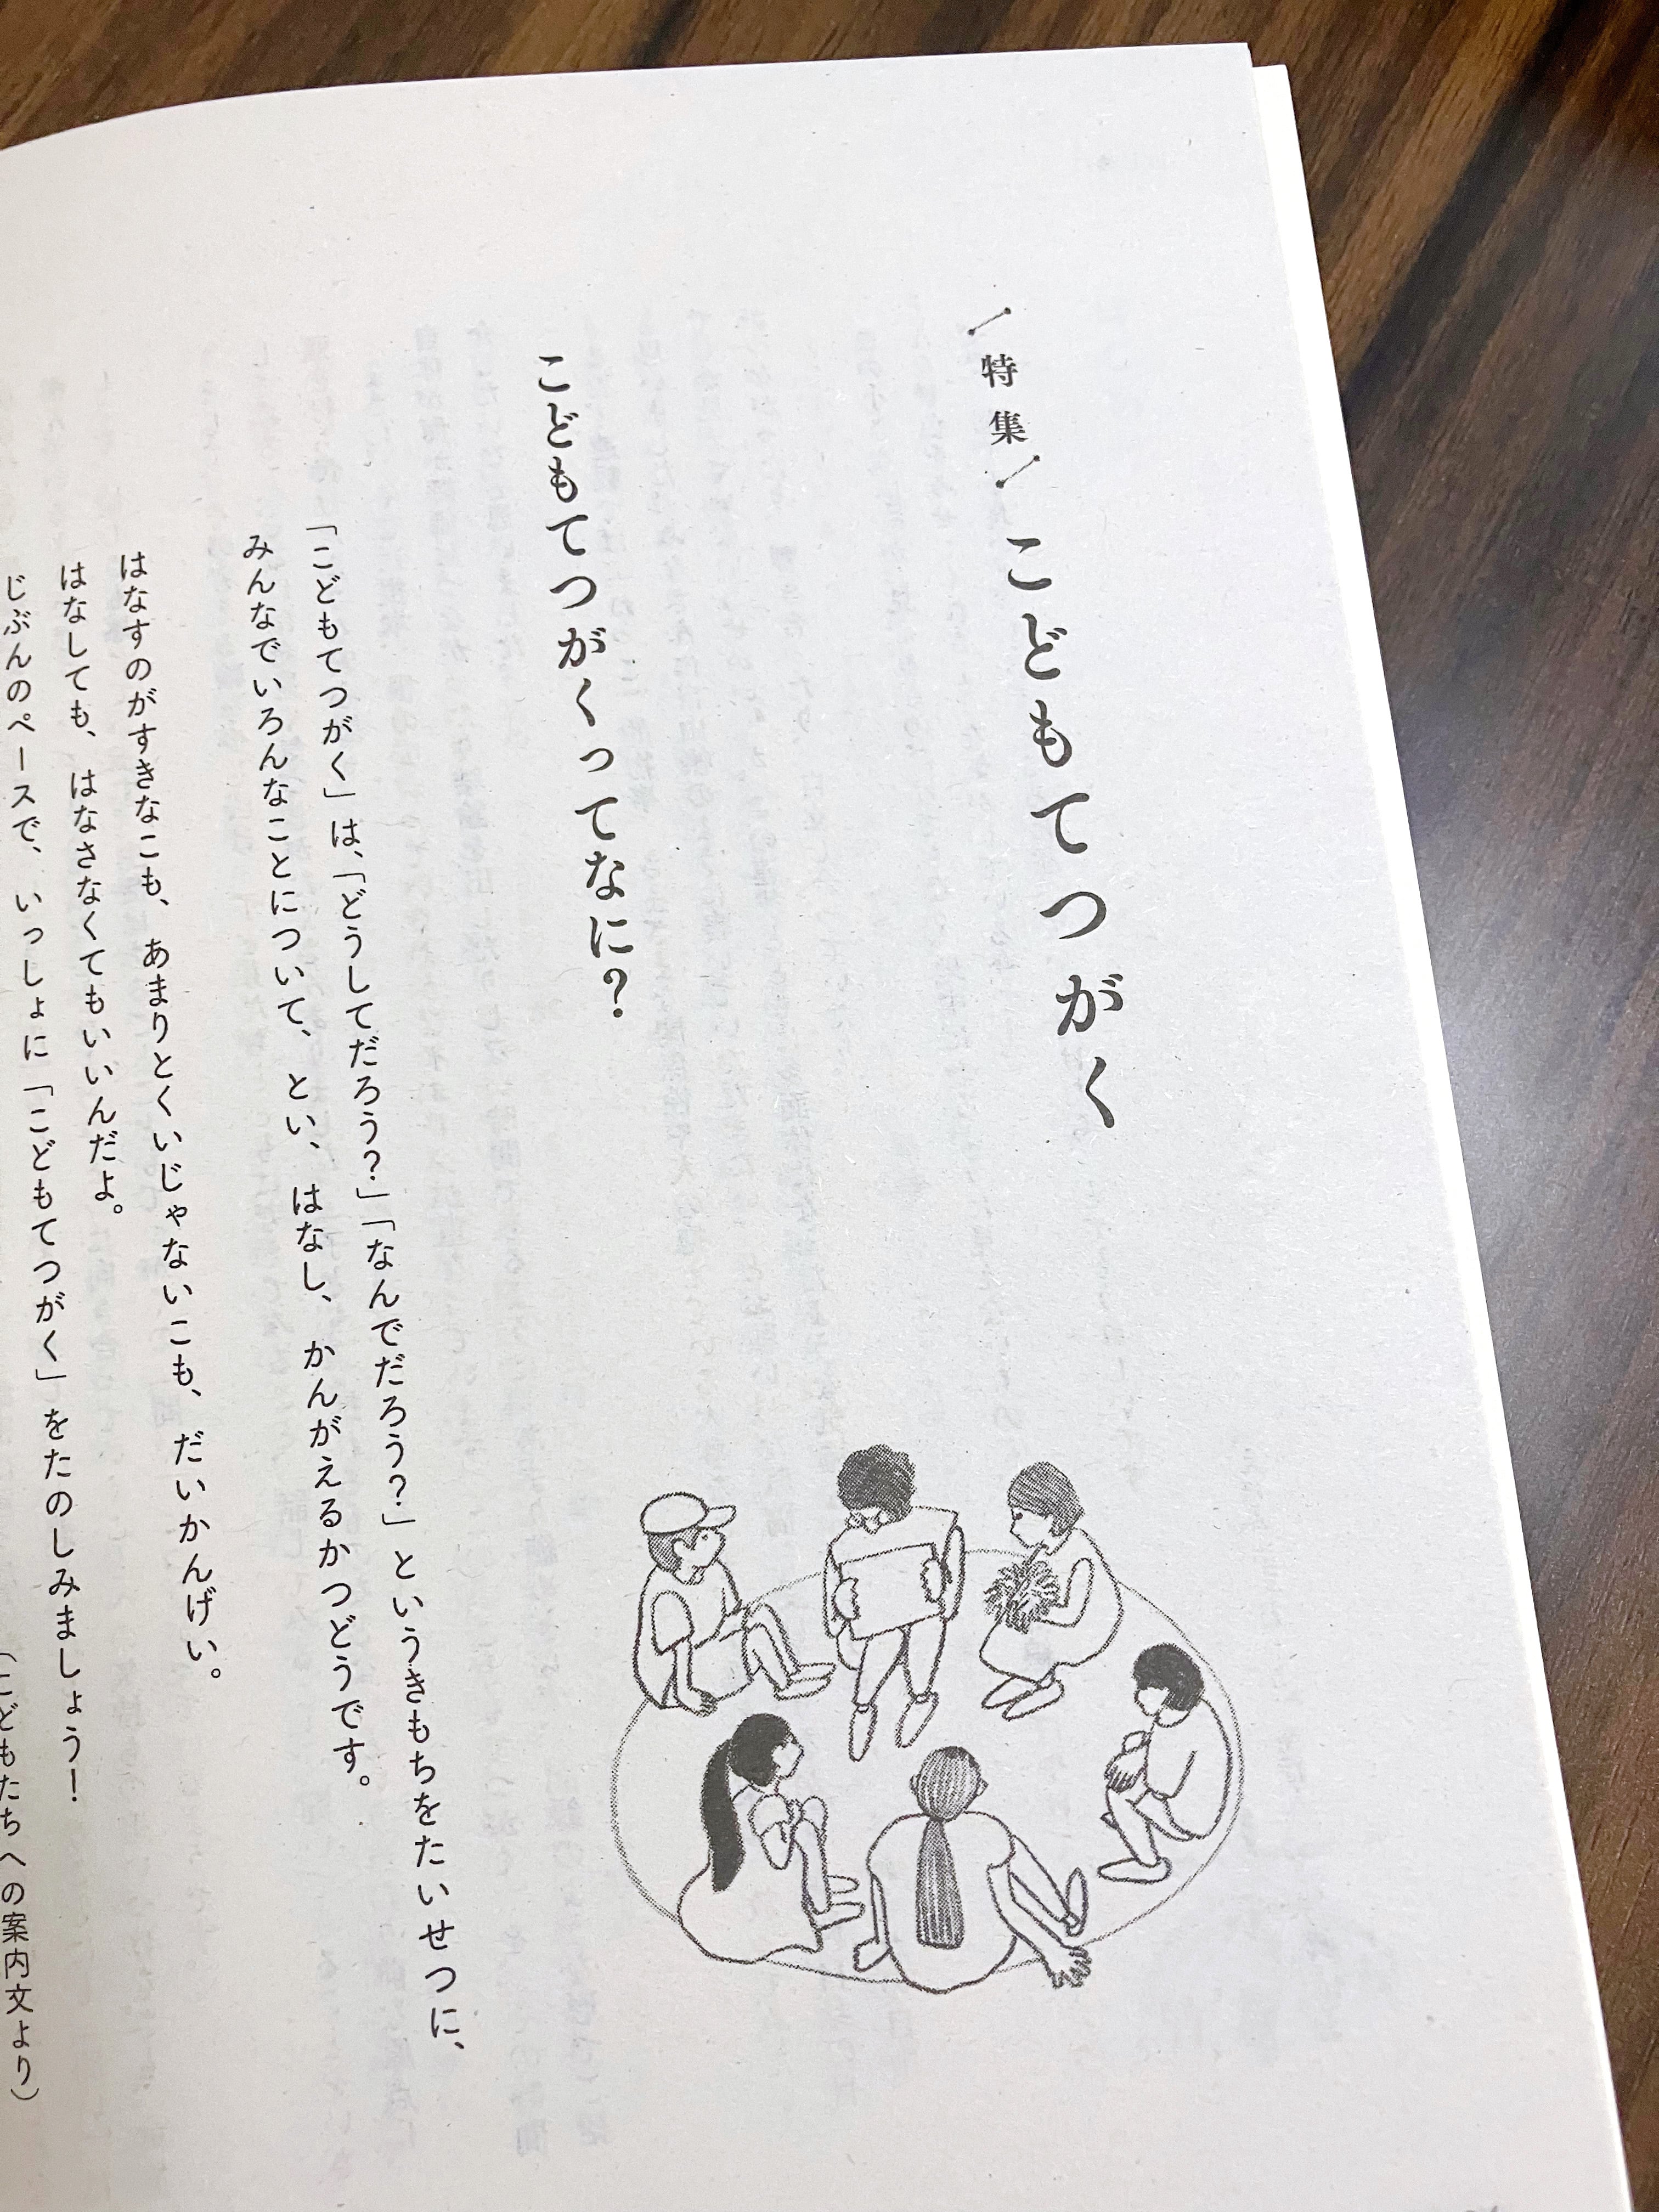 特集
こどもてつがく
こどもてつがくってなに？
「こどもてつがく」は、「どうしてだろう？」「なんでだろう？」というきもちをたいせつに、
みんなでいろんなことについて、とい、はなし、かんがえるかつどうです。
はなすのがすきなこも、あまりとくいじゃないこも、だいかんげい。
はなしても、はなさなくてもいいんだよ。
じぶんのペースで、いっしょに「こどもてつがく」をたのしみましょう！
（こどもたちへの案内文より）